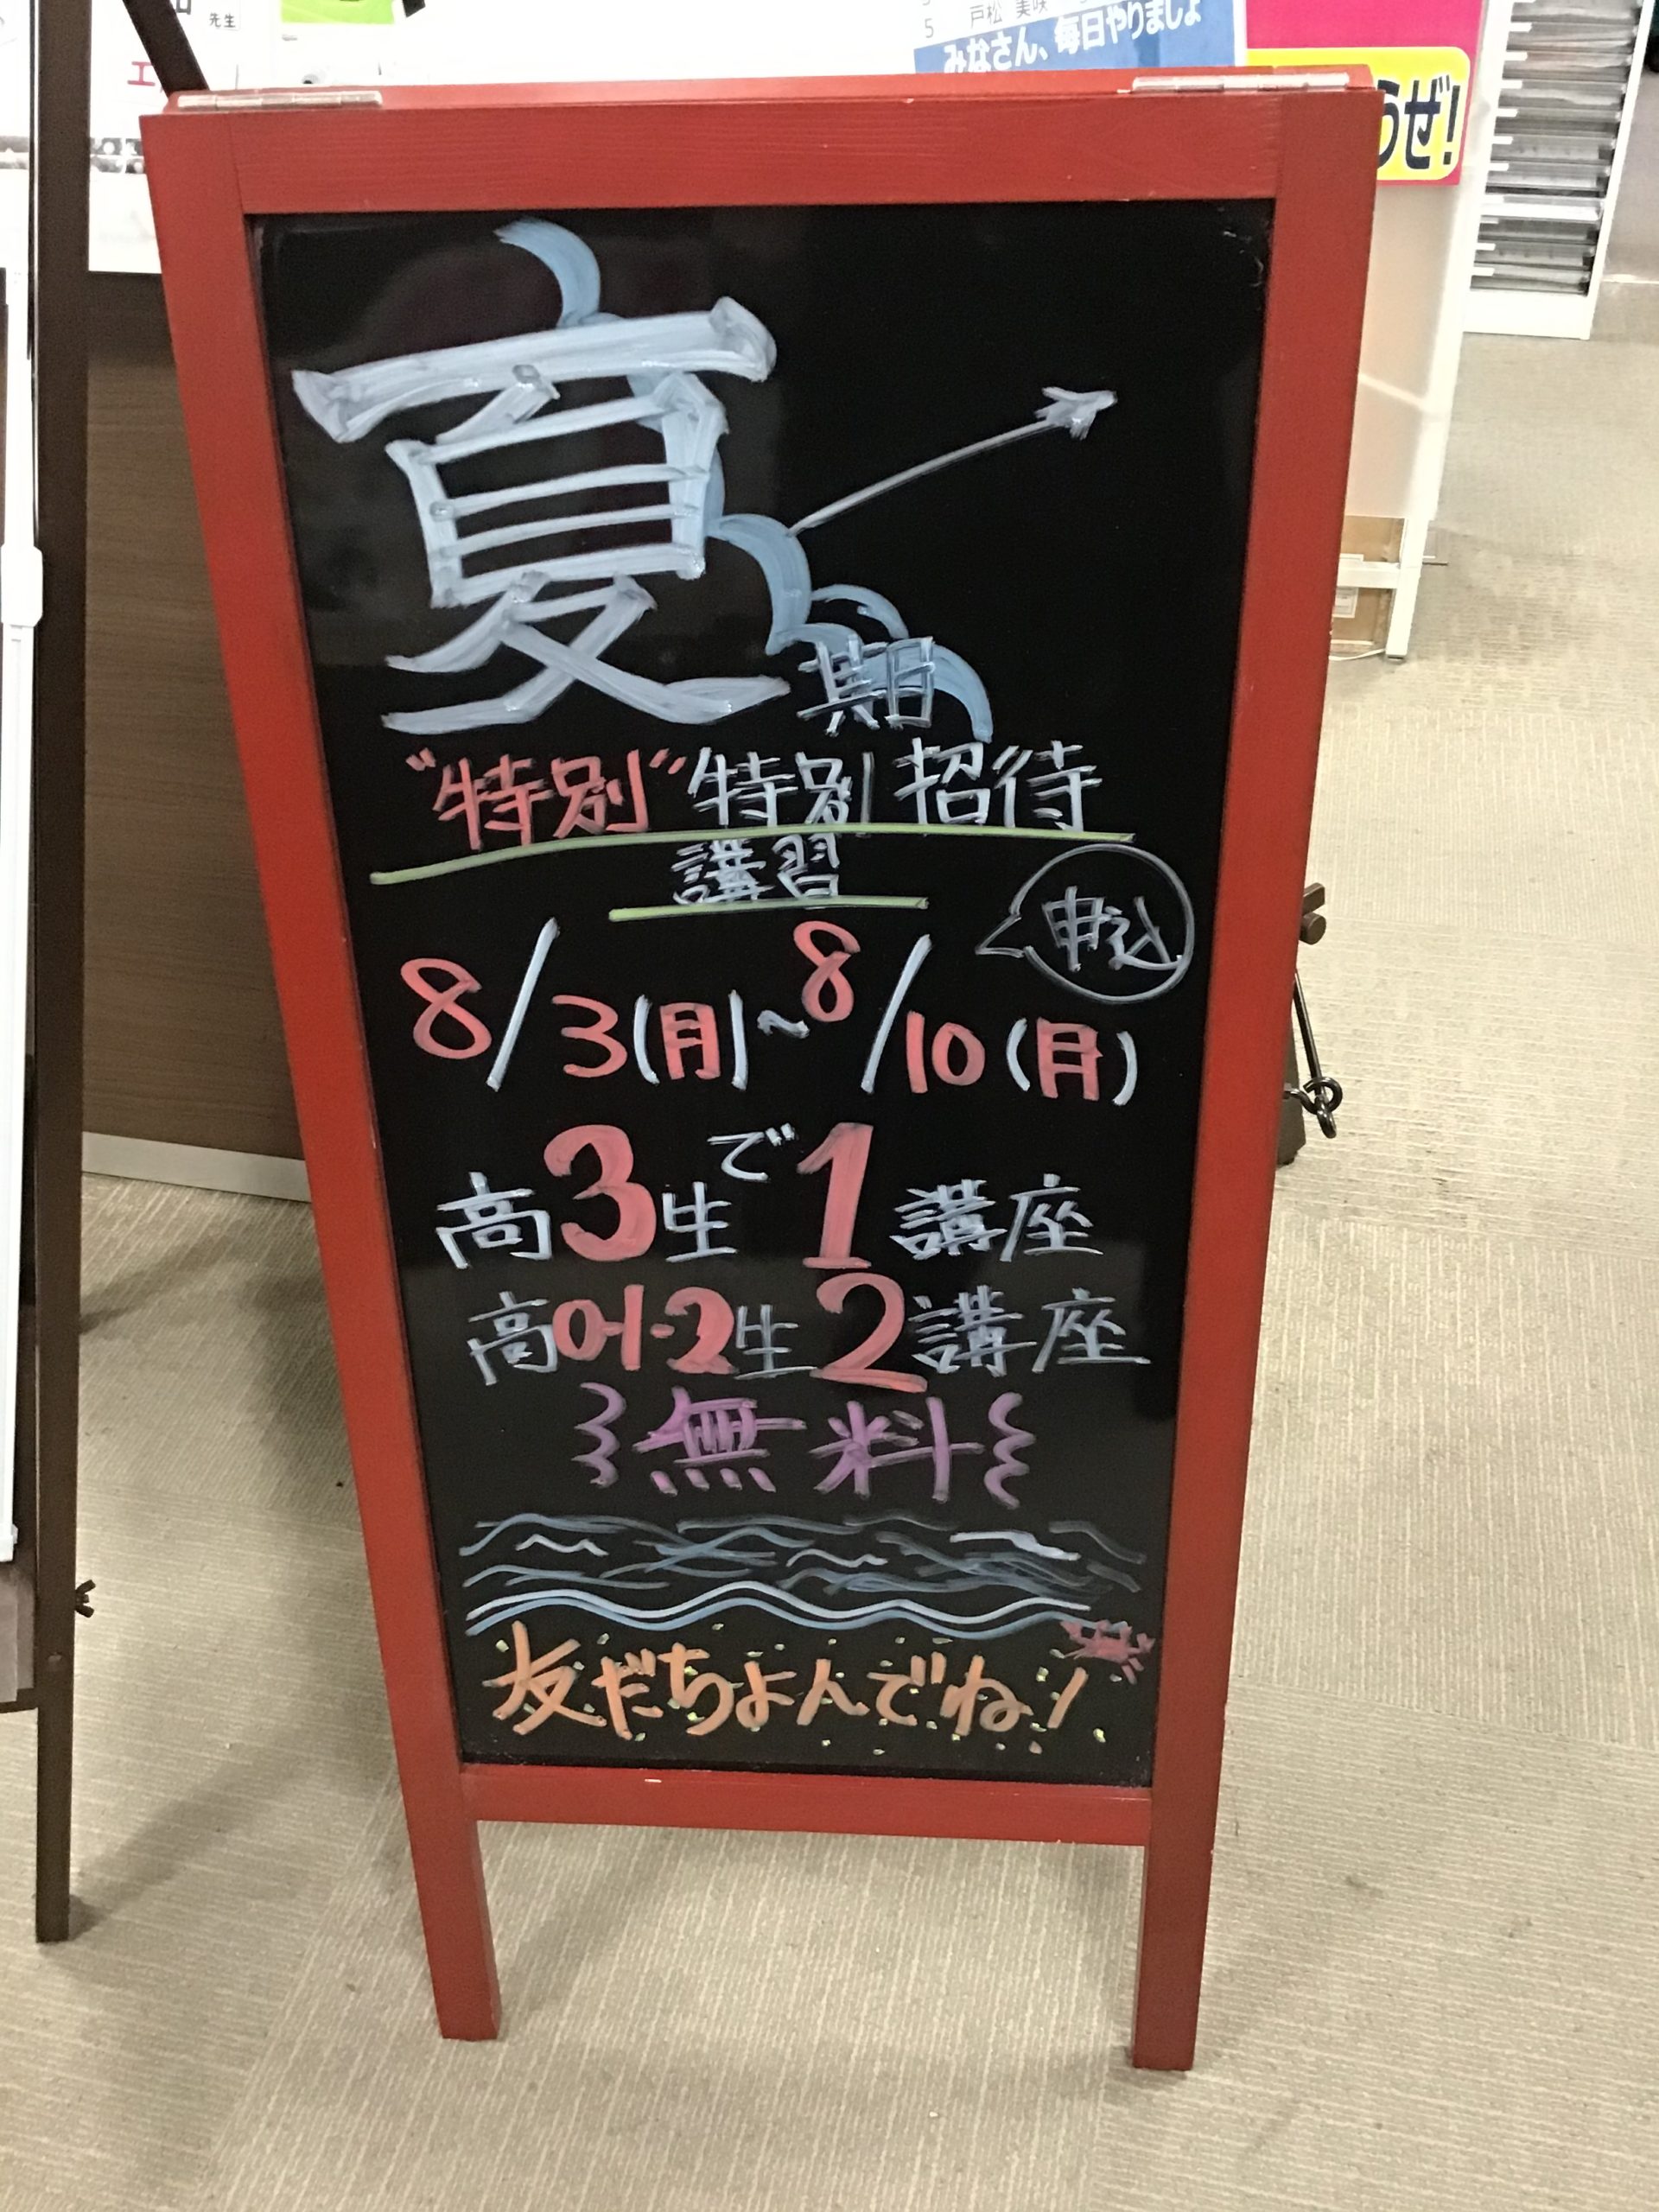 先生
エ
5 戸松 美咲
みなさん、毎日やりましょ
うぜ!
夏期
"特別"特別招待
講習
申込
8/3(月)~8/10(月)
高3生で1講座
高0-1-2生2講座
無料
友だちよんでね!